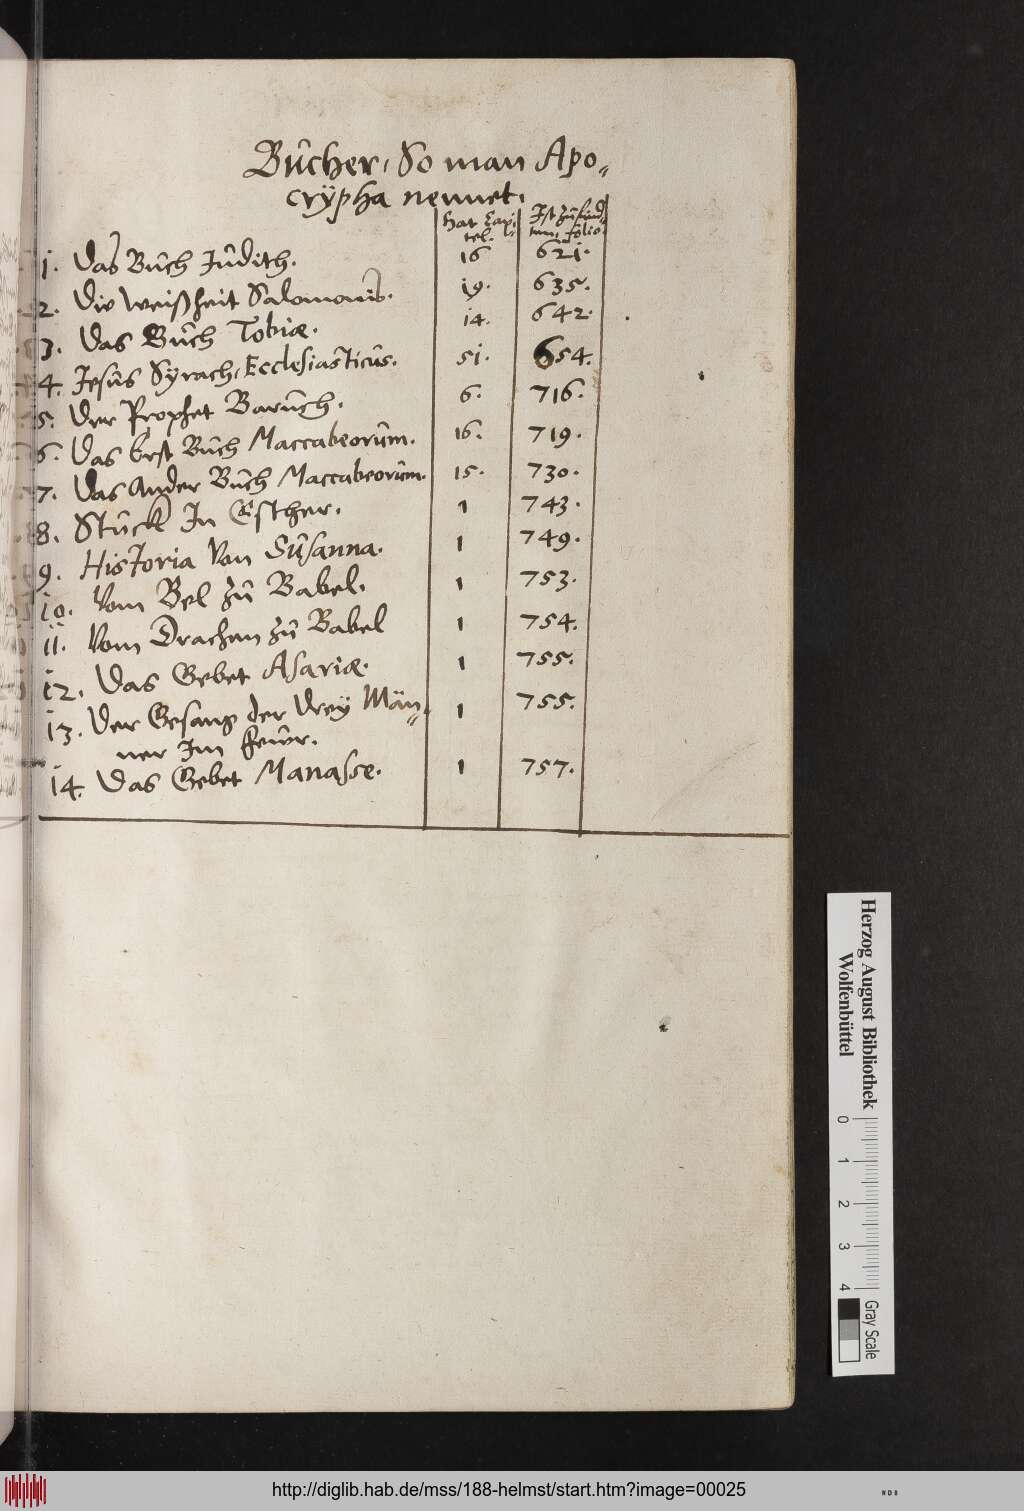 Bücher, So man Apo„
crÿpha nennet.
Hat Capi„
tel.
Ist zu find„
ten, folio.
1. Das Buch Judith. 16 621.
2. Die Weißheit Salomonis. 19. 635.
3. Das Buch Tobiæ. 14. 642.
4. Jesus Sÿrach, Ecclesiasticus. 51. 654.
5. Der Prophet Baruch. 6. 716.
6. Das Erst Buch Maccabeorum. 16. 719.
7. Das Ander Buch Maccabeorum. 15. 730.
8. Stuck In Esther. 1 743.
9. Historia Von Susanna. 1 749.
10. Vom Bel zu Babel. 1 753.
11. Vom Drachen zu Babel 1 754.
12. Das Gebet Asariæ. 1 755.
13. Der Gesang der Dreÿ Män„ 1 755.
ner Im Fewr.
14. Das Gebet Manasse. 1 757.
Herzog August Bibliothek
Wolfenbüttel
0 1 2 3 4 Gray Scale
http://diglib.hab.de/mss/188-helmst/start.htm?image=00025